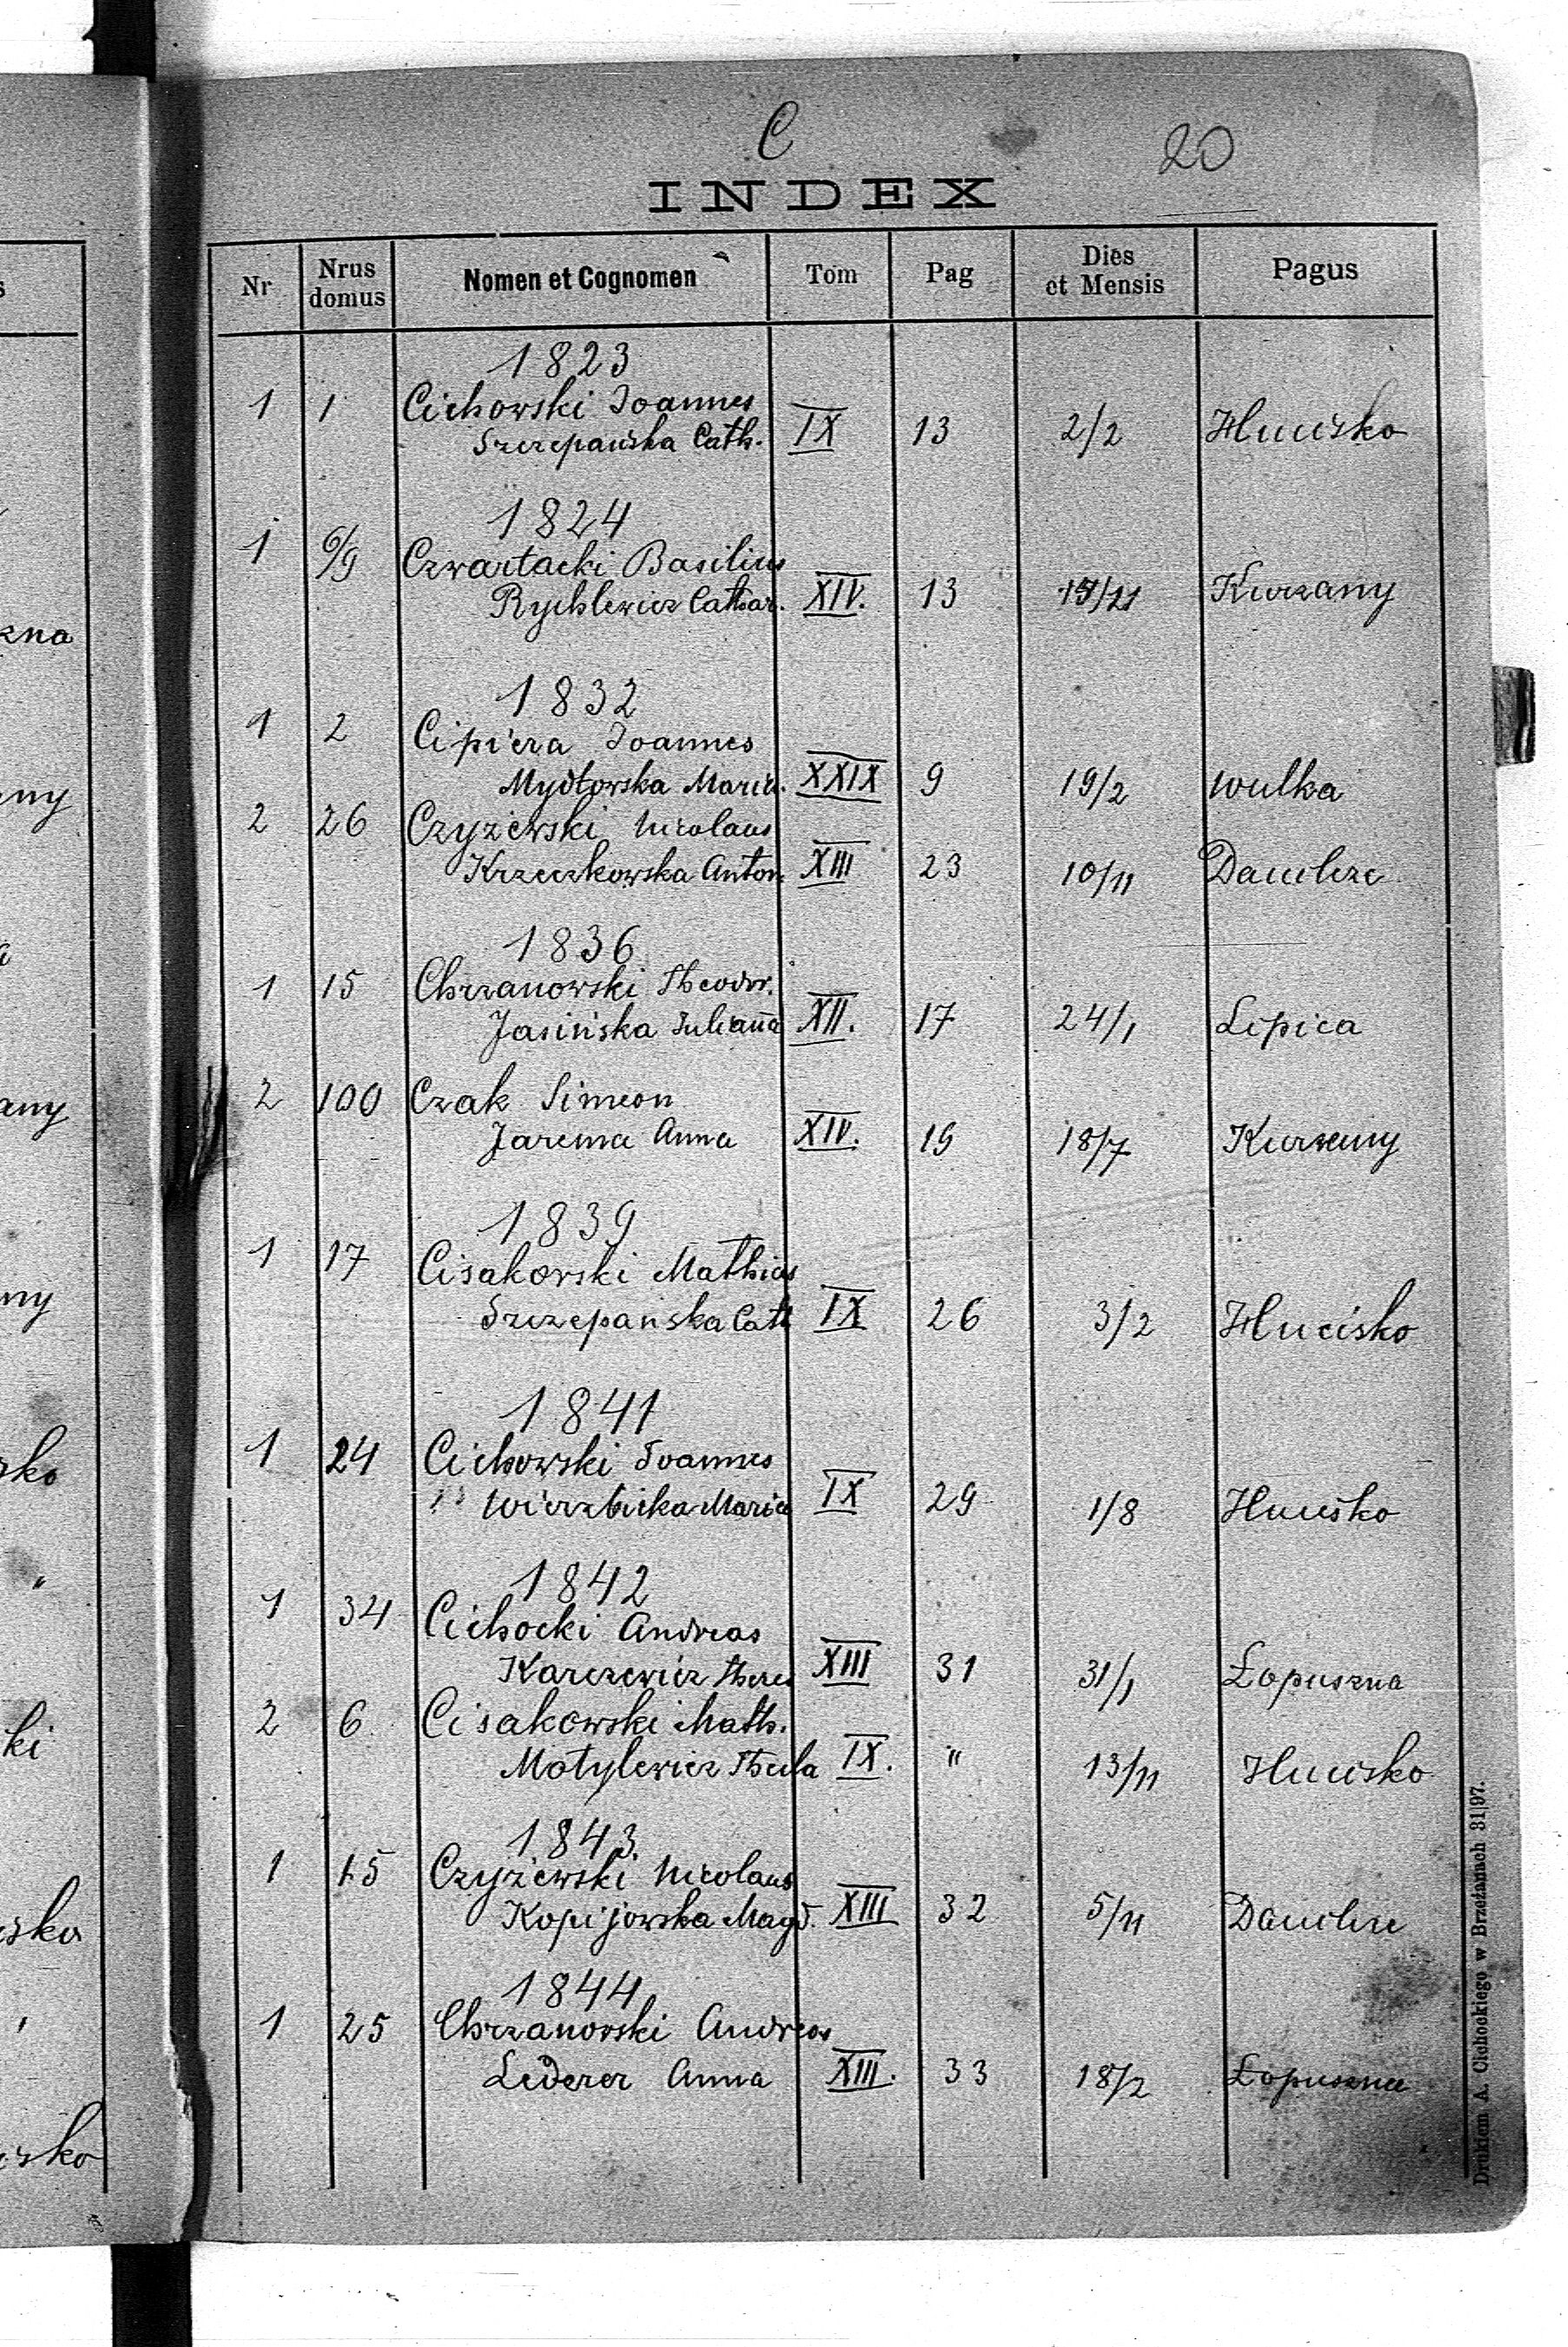 C
20
INDEX
Nr Nrus domus Nomen et Cognomen Tom Pag Dies et Mensis Pagus
1823
1 1 Cichowski Joannes
Szczepańska Cath. IX 13 2/2 Hucisko
1824
1 6/9 Czwartacki Basilius
Rychlewicz Cathar. XIV. 13 Kurzany
1832
1 2 Cipiera Joannes
Mydłowska Maria. XXIX 9 19/2 Wulka
2 26 Czyżewski Nicolaus
Krzeczkowska Anton XIII 23 10/11 Danilcze
1836
1 15 Chrzanowski Theodor.
Jasińska Julianna XII. 17 24/1 Lipica
2 100 Czak Simeon
Jarema Anna XIV. 19 18/7 Kurzany
1839
1 17 Cisakowski Mathias
Szczepańska Cath IX 26 3/2 Hucisko
1841
1 24 Cichowski Joannes
Wierzbicka Maria IX 29 1/8 Hucisko
1842
1 34 Cichocki Andreas
Karczewicz Theres XIII 31 31/1 Łopuszna
2 6 Cisakowski Math.
Motylewicz Thecla IX. " 13/11 Hucisko
1843.
1 15 Czyżewski Nicolaus
Kopijowska Magd. XIII 32 5/11 Danilcze
1844
1 25 Chrzanowski Andreas
Lederer Anna XIII. 33 18/2 Łopuszna
Drukiem A. Cichockiego w Brzeżanach 31|97.
s
zna
any
any
ny
sko
"
ki
sko
sko